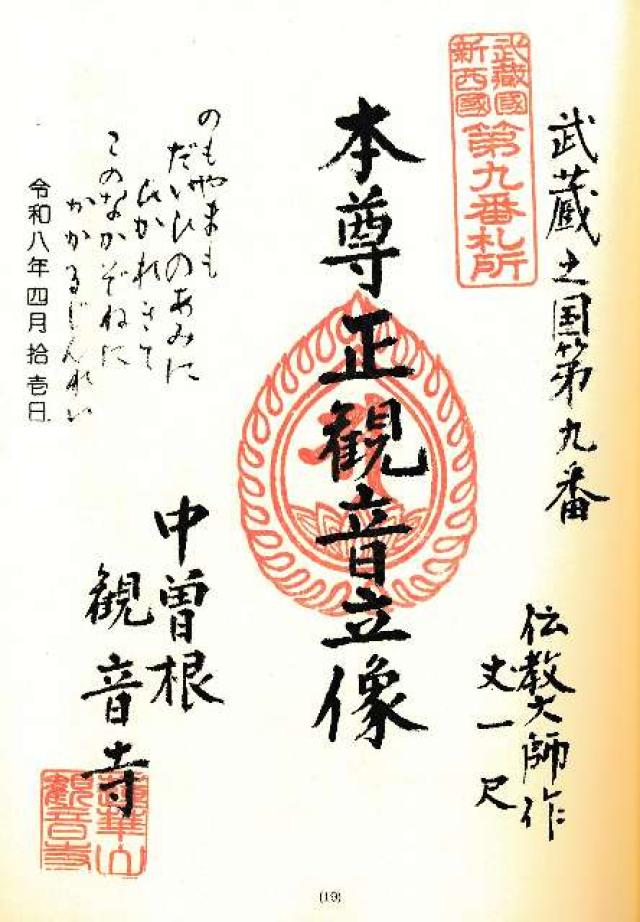 武蔵之国第九番
武蔵國
新西國
第九番札所
伝教大師作
丈一尺
本尊正観音立像
のもやまも
だいひのあみに
ひかれきて
このなかぞねに
かかるじんれい
令和八年四月拾壱日
中曽根
観音寺
観音寺
(19)